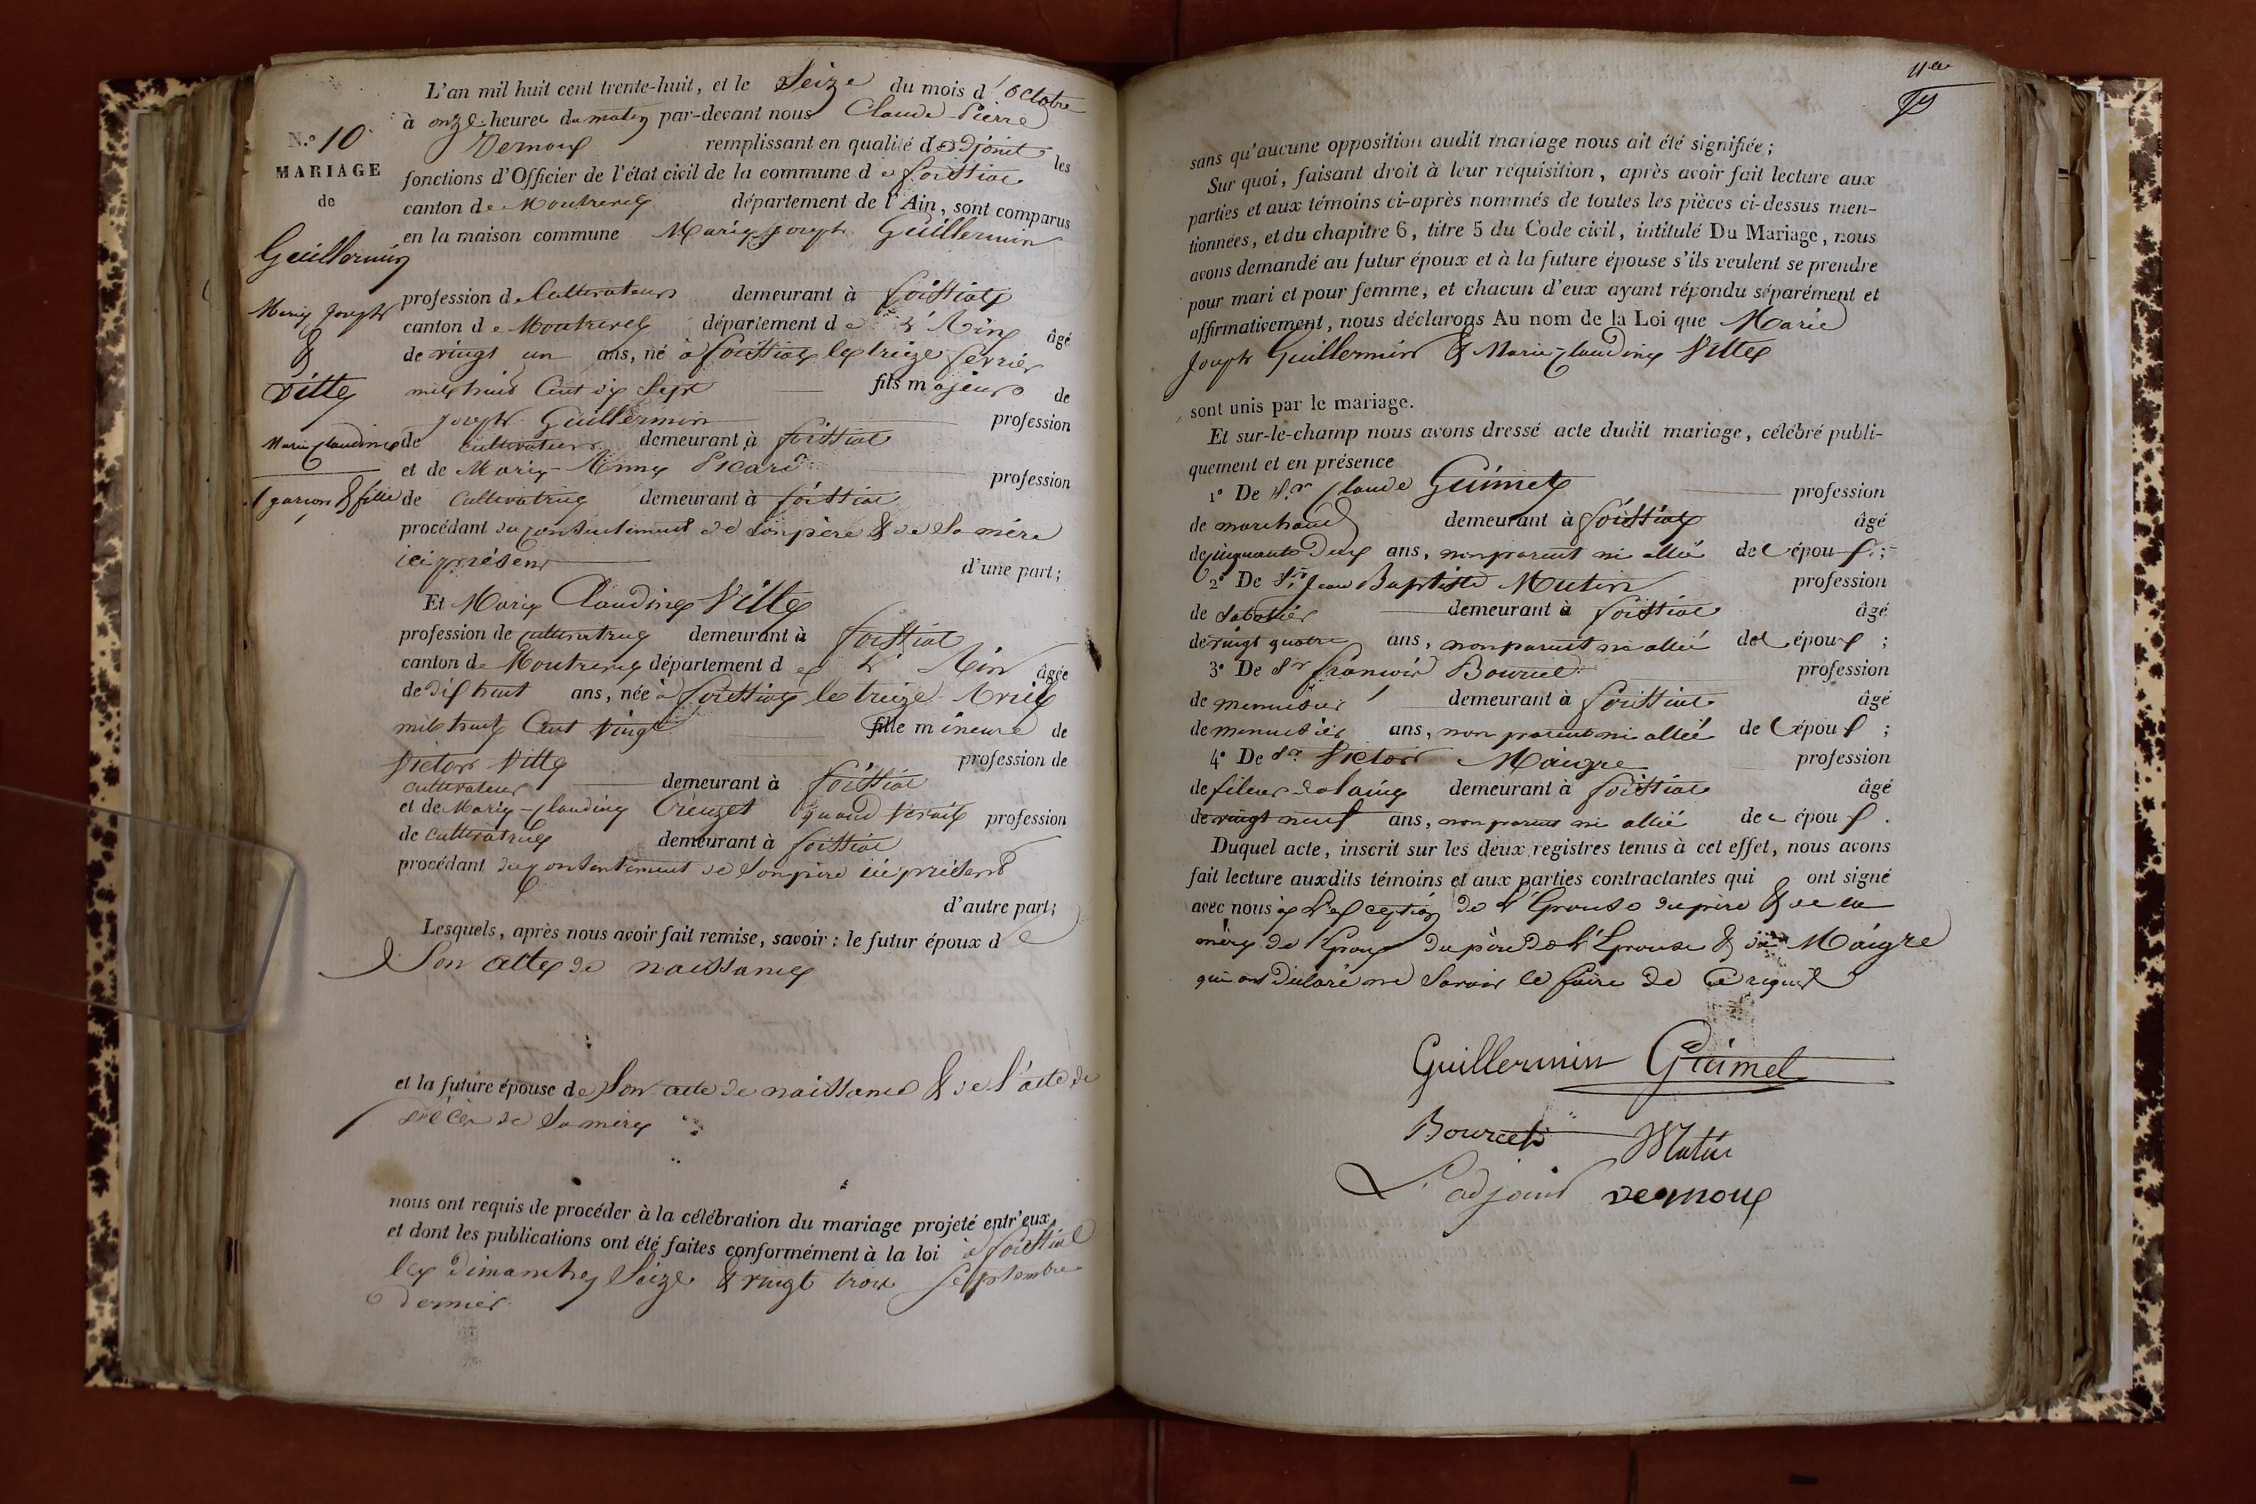 L'an mil huit cent trente-huit, et le Seize du mois d'octobre
à onze heures du matin par-devant nous Claude Pierre
Vernoux remplissant en qualité d'Adjoint les
fonctions d'Officier de l'état civil de la commune de foissiat
canton de Montrevel département de l'Ain, sont comparus
en la maison commune Marie Joseph Guillermin
N.º 10
MARIAGE
de
Guillermin
Marie Joseph
&
Vitte
Marie Claudine
1 garçon & fille
profession de Cultivateur demeurant à foissiat
canton de Montrevel département de L'Ain âgé
de vingt un ans, né à foissiat le treize fevrier
mil huit Cent dix Sept fils majeur de
Joseph Guillermin profession
de cultivateur demeurant à foissiat
et de Marie-Anne Picard profession
de Cultivatrice demeurant à foissiat
procédant du consentement de son père & de Sa mère
ici présent d'une part;
Et Marie Claudine Vitte
profession de cultivatrice demeurant à foissiat
canton de Montrevel département de L'Ain âgée
de dix huit ans, née à foissiat le treize Avril
mil huit Cent vingt fille mineure de
Victor Vitte profession de
cultivateur demeurant à foissiat
et de Marie-Claudine Creuzet quand vivait profession
de cultivatrice demeurant à foissiat
procédant du consentement de Son père ici présent
d'autre part;
Lesquels, après nous avoir fait remise, savoir: le futur époux de
Son acte de naissance
et la future épouse de Son acte de naissance & de l'acte de
décès de Sa mère
nous ont requis de procéder à la célébration du mariage projeté entr'eux,
et dont les publications ont été faites conformément à la loi à foissiat
les dimanches Seize & vingt trois Septembre
dernier
sans qu'aucune opposition audit mariage nous ait été signifiée;
Sur quoi, faisant droit à leur réquisition, après avoir fait lecture aux
parties et aux témoins ci-après nommés de toutes les pièces ci-dessus men-
tionnées, et du chapitre 6, titre 5 du Code civil, intitulé Du Mariage, nous
avons demandé au futur époux et à la future épouse s'ils veulent se prendre
pour mari et pour femme, et chacun d'eux ayant répondu séparément et
affirmativement, nous déclarons Au nom de la Loi que Marie
Joseph Guillermin & Marie-Claudine Vitte
sont unis par le mariage.
Et sur-le-champ nous avons dressé acte dudit mariage, célébré publi-
quement et en présence
1º De Sr Claude Guimet profession
de marchand demeurant à foissiat âgé
de cinquante deux ans, non parent ni allié de l'époux;
2º De Sr Jean Baptiste Mutin profession
de Sabotier demeurant à foissiat âgé
de vingt quatre ans, non parent ni allié de l'époux;
3º De Sr françois Bourcet profession
de menuisier demeurant à foissiat âgé
de menuisier ans, non parent ni allié de l'époux;
4º De Sr Victor Maigre profession
de fileur de laine demeurant à foissiat âgé
de vingt neuf ans, non parent ni allié de l'époux.
Duquel acte, inscrit sur les deux registres tenus à cet effet, nous avons
fait lecture auxdits témoins et aux parties contractantes qui ont signé
avec nous à L'exception de L'Epouse du père & de la
mère de l'Epoux du père de L'Epouse & de Maigre
qui ont déclaré ne Savoir le faire de ce requis
Guillermin Guimet
Bourcet Mutin
L'adjoint vernoux